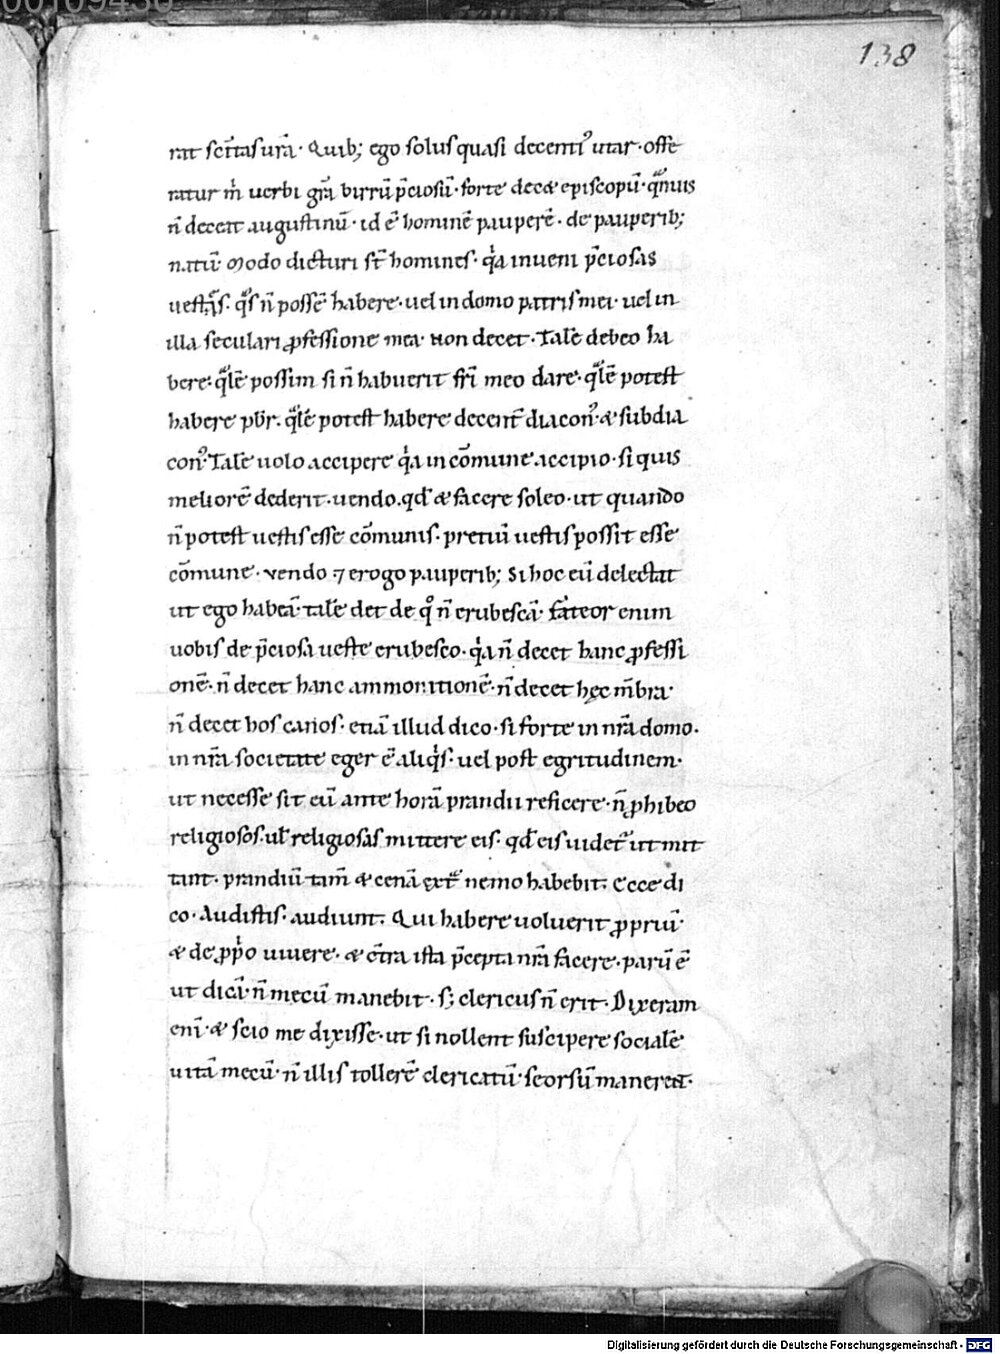 00109430
138
rat sc̄ītas urā̄. Quib; ego solus quasi decenti᾽ utar. offe
ratur m̄ uerbi grā birrū p̄ciosū. forte decet episcopū. quāuis
n̄ decett augustinū. id ē hominē pauperē. de pauperib;
natū. Modo dicturi st̄ homines. qa inueni p̄ciosas
uestes. qs n̄ possē habere. uel in domo patris mei. uel in
illa seculari ꝓfessione mea. Non decet. Talē debeo ha
bere. qlē possim si n̄ habuerit fr̄i meo dare. qlē potest
habere pbr. qlē potest habere decent̄ diacon᾽ & subdia
con᾽. Talē uolo accipere qa in cōmune accipio. si quis
meliorē dederit. uendo. qd & facere soleo. ut quando
n̄ potest uestis esse cōmunis. pretiū uestis possit esse
cōmune. Vendo ⁊ erogo pauperib; Si hoc eū delectat
ut ego habeā. talē det de qͦ n̄ erubescā. Fateor enim
uobis de p̄ciosa ueste erubesco. qa n̄ decet hanc ꝓfessi
onē. n̄ decet hanc ammonitionē. n̄ decet hęc m̄bra.
n̄ decet hos canos. etiā illud dico. si forte in nrā domo.
in nrā societate eger ē aliqs. uel post egritudinem.
ut necesse sit eū ante horā prandii reficere. n̄ ꝓhibeo
religiosos. ul̄ religiosas mittere eis. qd eis uidet᾽ ut mit
tant. prandiū tam̄ & cenā ext̄ᵃ nemo habebit. Ecce di
co. Audistis. audiunt. Qui habere uoluerit ꝓpriū.
& de ꝓp̄o uiuere. & c̄tra ista p̄cepta nrā facere. parū ē
ut dicā. n̄ mecū manebit. s; clericus n̄ erit. Dixeram
enī. & scio me dixisse. ut si nollent suscipere socialē
uitā mecū. n̄ illis tollerē clericatū. seorsū manerent.
Digitalisierung gefördert durch die Deutsche Forschungsgemeinschaft - DFG